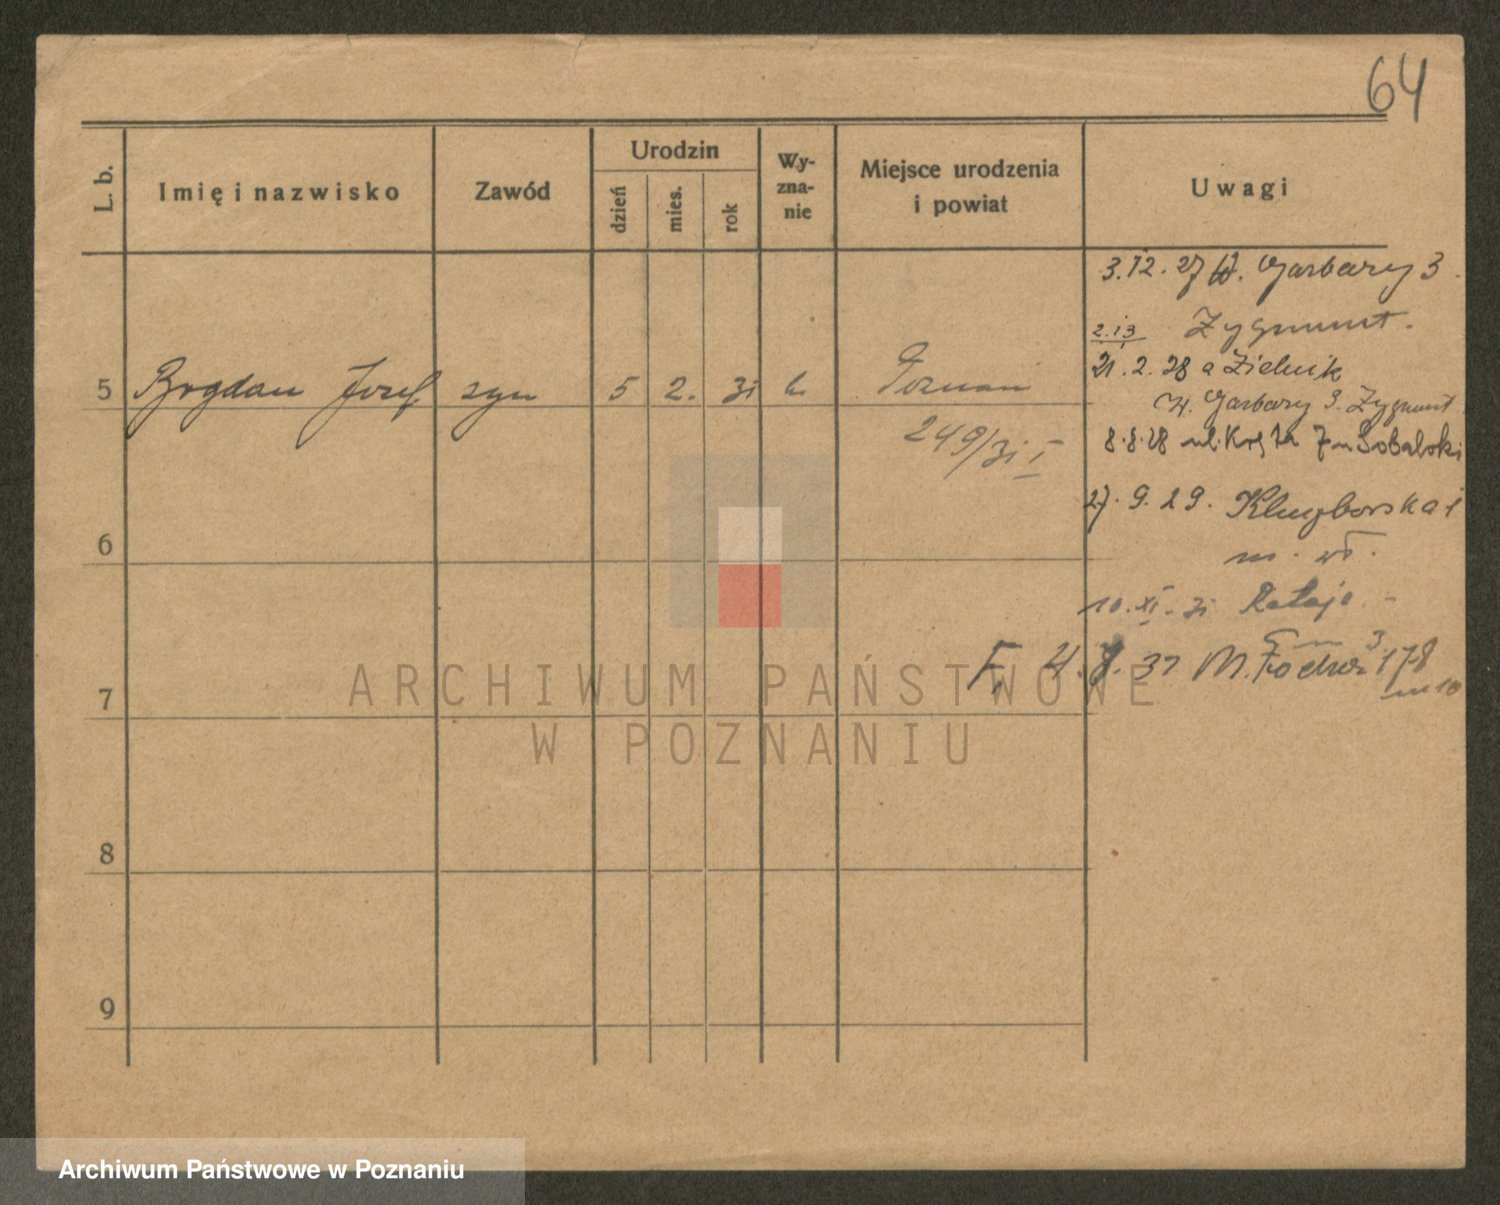 64
L. b.
Imię i nazwisko
Zawód
Urodzin
dzień
mies.
rok
Wy-
zna-
nie
Miejsce urodzenia
i powiat
Uwagi
3.12.27 W. Garbary 3
2.13 Zygmunt.
21.2.28 a Zielnik
W. Garbary 3. Zygmunt
5 Bogdan Józef syn 5 2. 31 k. Poznań
249/31 I
8.8.28 ul. Kręta 7 Sobalski
27.9.29. Kluczborska 1
6
m. wł.
10.XI.31 Rataje
7
F, 4.8.37 M. 178
m 10
8
9
ARCHIWUM PAŃSTWOWE
W POZNANIU
Archiwum Państwowe w Poznaniu